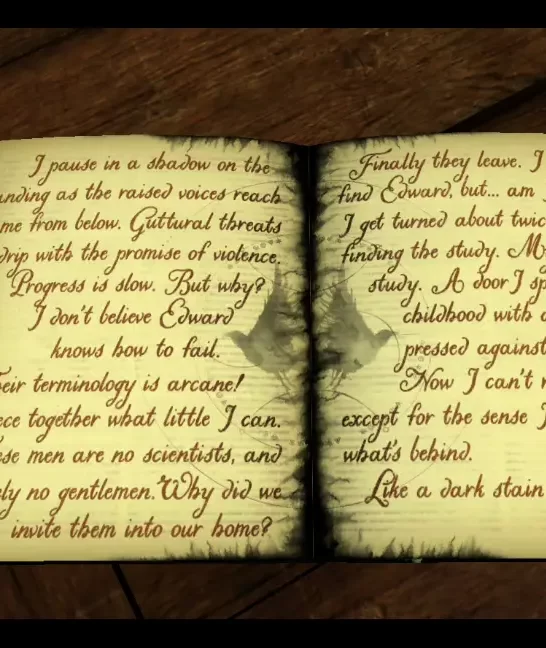 I pause in a shadow on the
anding as the raised voices reach
me from below. Guttural threats
drip with the promise of violence.
Progress is slow. But why?
I don't believe Edward
knows how to fail.
eir terminology is arcane!
ece together what little I can.
ese men are no scientists, and
ely no gentlemen. Why did we
invite them into our home?
Finally they leave. I
find Edward, but... am
I get turned about twic
finding the study. M
study. A door I sp
childhood with
pressed against
Now I can't
except for the sense
what's behind.
Like a dark stain